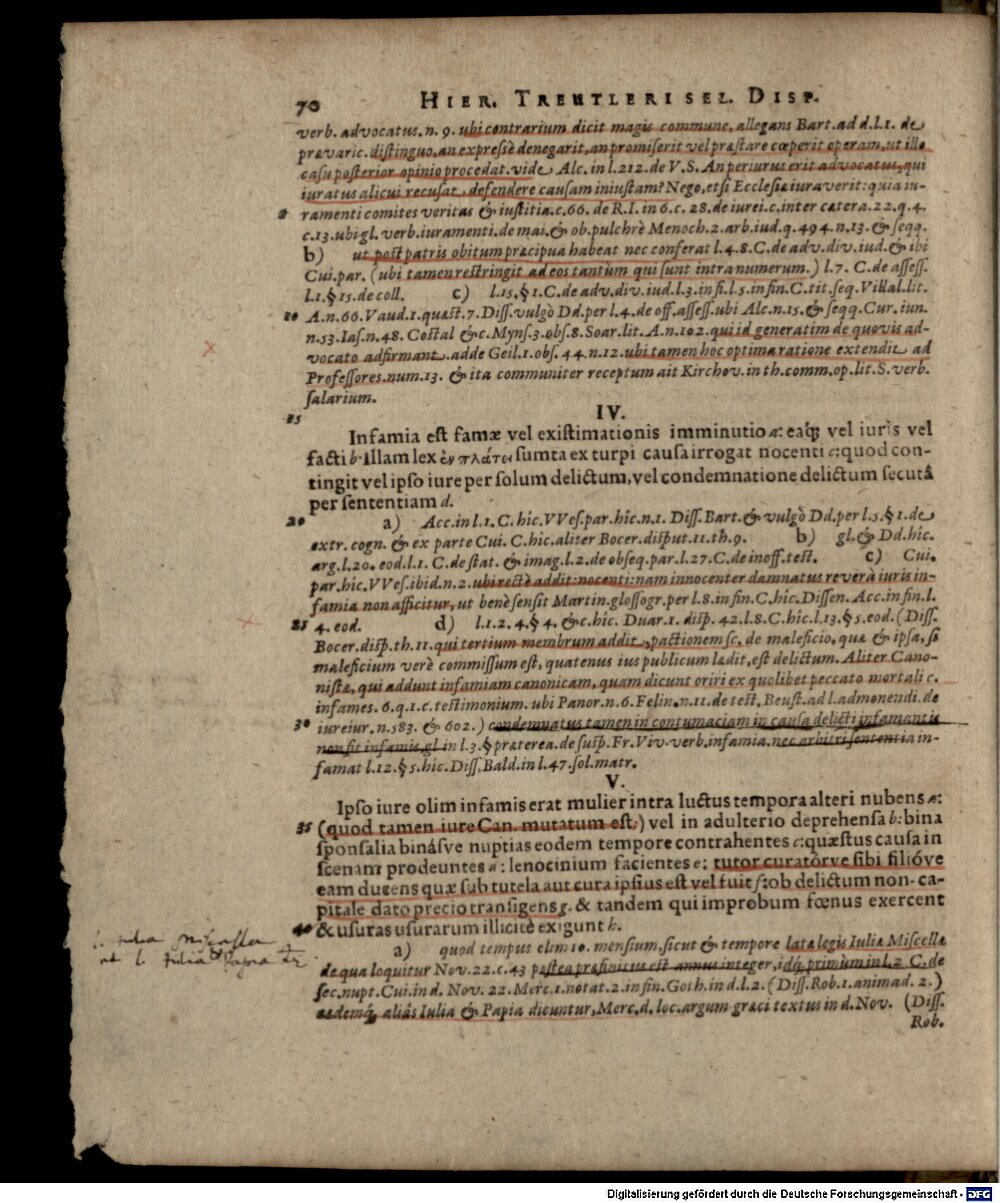 70 HIER. TREUTLERI SEL. DISP.
verb. advocatus. n. 9. ubi contrarium dicit magis commune, allegans Bart. ad d. l. 1. de
prævaric. distinguo, an expressè denegarit, an promiserit vel præstare cœperit operam, ut illo
casu posterior opinio procedat. vide Alc. in l. 212. de V. S. An periurus erit advocatus, qui
iuratus alicui recusat defendere causam iniustam? Nego, etsi Ecclesiæ iuraverit: quia iu-
ramenti comites veritas & iustitia. c. 66. de R. I. in 6. c. 28. de iurei. c. inter cætera. 22. q. 4.
c. 13. ubi gl. verb. iuramenti. de mai. & ob. pulchrè Menoch. 2. arb. iud. q. 494. n. 13. & seqq.
b) ut post patris obitum præcipua habeat nec conferat l. 4. 8. C. de adv. div. iud. & ibi
Cui. par. (ubi tamen restringit ad eos tantùm qui sunt intra numerum.) l. 7. C. de assess.
l. 1. § 15. de coll. c) l. 15. § 1. C. de adv. div. iud. l. 3. in fi. l. 5. in fin. C. tit. seq. Villal. lit.
10 A. n. 66. Vaud. 1. quæst. 7. Diss. vulgò Dd. per l. 4. de off. assess. ubi Alc. n. 15. & seqq. Cur. iun.
n. 53. Ias. n. 48. Costal &c. Myns. 3. obs. 8. Soar. lit. A. n. 102. qui id generatim de quovis ad-
vocato adfirmant. adde Geil. 1. obs. 44. n. 12. ubi tamen hoc optima ratione extendit ad
Professores. num. 13. & ita communiter receptum ait Kirchov. in th. comm. op. lit. S. verb.
salarium.
15 IV.
Infamia est famæ vel existimationis imminutio a: eaq́; vel iuris vel
facti b. Illam lex ἐν πλάτει sumta ex turpi causa irrogat nocenti c: quod con-
tingit vel ipso iure per solum delictum, vel condemnatione delictum secutâ
per sententiam d.
20 a) Acc. in l. 1. C. hîc. VVes. par. hîc. n. 1. Diss. Bart. & vulgò Dd. per l. 5. § 1. de
extr. cogn. & ex parte Cui. C. hic. aliter Bocer. disput. 11. th. 9. b) gl. & Dd. hic.
arg. l. 20. eod. l. 1. C. de stat. & imag. l. 2. de obseq. par. l. 27. C. de inoff. test. c) Cui.
par. hîc. VVes. ibid. n. 2. ubi rectè addit: nocenti: nam innocenter damnatus reverà iuris in-
famia non afficitur, ut benè sensit Martin. glossogr. per l. 8. in fin. C. hîc. Dissen. Acc. in fin. l.
25 4. eod. d) l. 1. 2. 4. § 4. &c. hîc. Duar. 1. disp. 42. l. 8. C. hîc. l. 13. § 5. eod. (Diss.
Bocer. disp. th. 11. qui tertium membrum addit, pactionem sc. de maleficio, quæ & ipsa, si
maleficium verè commissum est, quatenus ius publicum lædit, est delictum. Aliter Cano-
nistæ, qui addunt infamiam canonicam, quam dicunt oriri ex quolibet peccato mortali c.
infames. 6. q. 1. c. testimonium. ubi Panor. n. 6. Felin. n. 11. de test. Beust. ad l. admonendi. de
30 iureiur. n. 583. & 602.) condemnatus tamen in contumaciam in causa delicti infamantis
non fit infamis, gl in l. 3. § præterea. de susp. Fr. Viv. verb. infamia. nec arbitri sententia in-
famat l. 12. § 5. hîc. Diss. Bald. in l. 47. sol. matr.
V.
Ipso iure olim infamis erat mulier intra luctus tempora alteri nubens a:
35 (quod tamen iure Can. mutatum est:) vel in adulterio deprehensa b: bina
sponsalia binásve nuptias eodem tempore contrahentes c: quæstus causa in
scenam prodeuntes d: lenocinium facientes e: tutor curatórve sibi filióve
eam ducens quæ sub tutela aut cura ipsius est vel fuit f: ob delictum non ca-
pitale dato precio transigens g. & tandem qui improbum fœnus exercent
40 & usuras usurarum illicitè exigunt h.
a) quod tempus olim 10. mensium, sicut & tempore latæ legis Iulia Miscellæ
de qua loquitur Nov. 22. c. 43 postea præfinitus est annus integer, idq́; primùm in l. 2 C. de
sec. nupt. Cui. in d. Nov. 22. Merc. 1. notat. 2. in fin. Goth. in d. l. 2. (Diss. Rob. 1. animad. 2.)
eademq́; aliàs Iulia & Papia dicuntur, Merc. d. loc. argum. græci textus in d. Nov. (Diss.
Rob.
l. Julia Miscella
l. Julia Papia
Digitalisierung gefördert durch die Deutsche Forschungsgemeinschaft - DFG